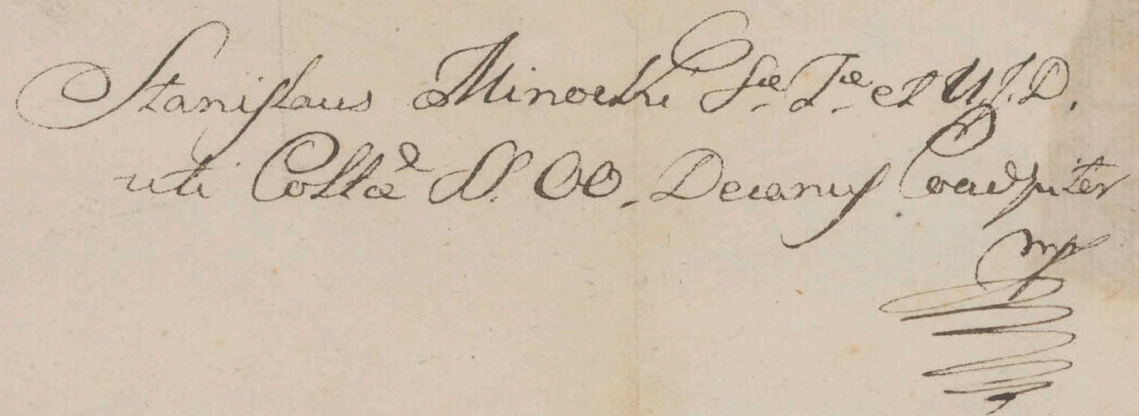 Stanislaus Minocki Sæ Tæ et U. J. D.
uti Collæ SS. OO. Decanus
mp